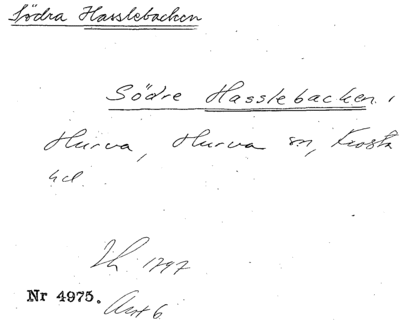 Södra Hasslebacken
Södre Hasslebacken,
Hurva, Hurva sn, Frosta
hd
Ih. 1797
Nr 4975.
Akt 6